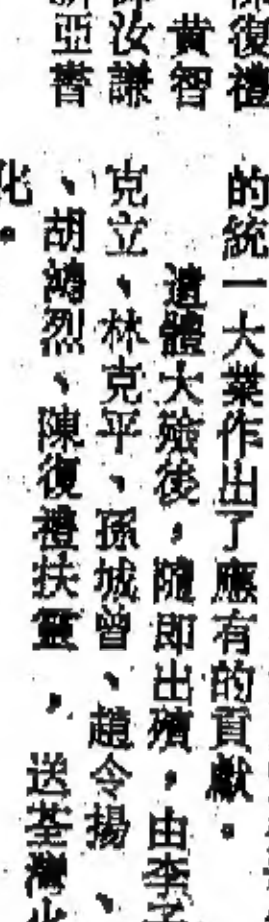 復禮
黃智
汝謙
亞書
的統一大業作出了應有的貢獻。
遺體大殮後，隨即出殯，由李
克立、林克平、孫城曾、趙令揚、
、胡鴻烈、陳復禮扶靈，送荃灣火
化。